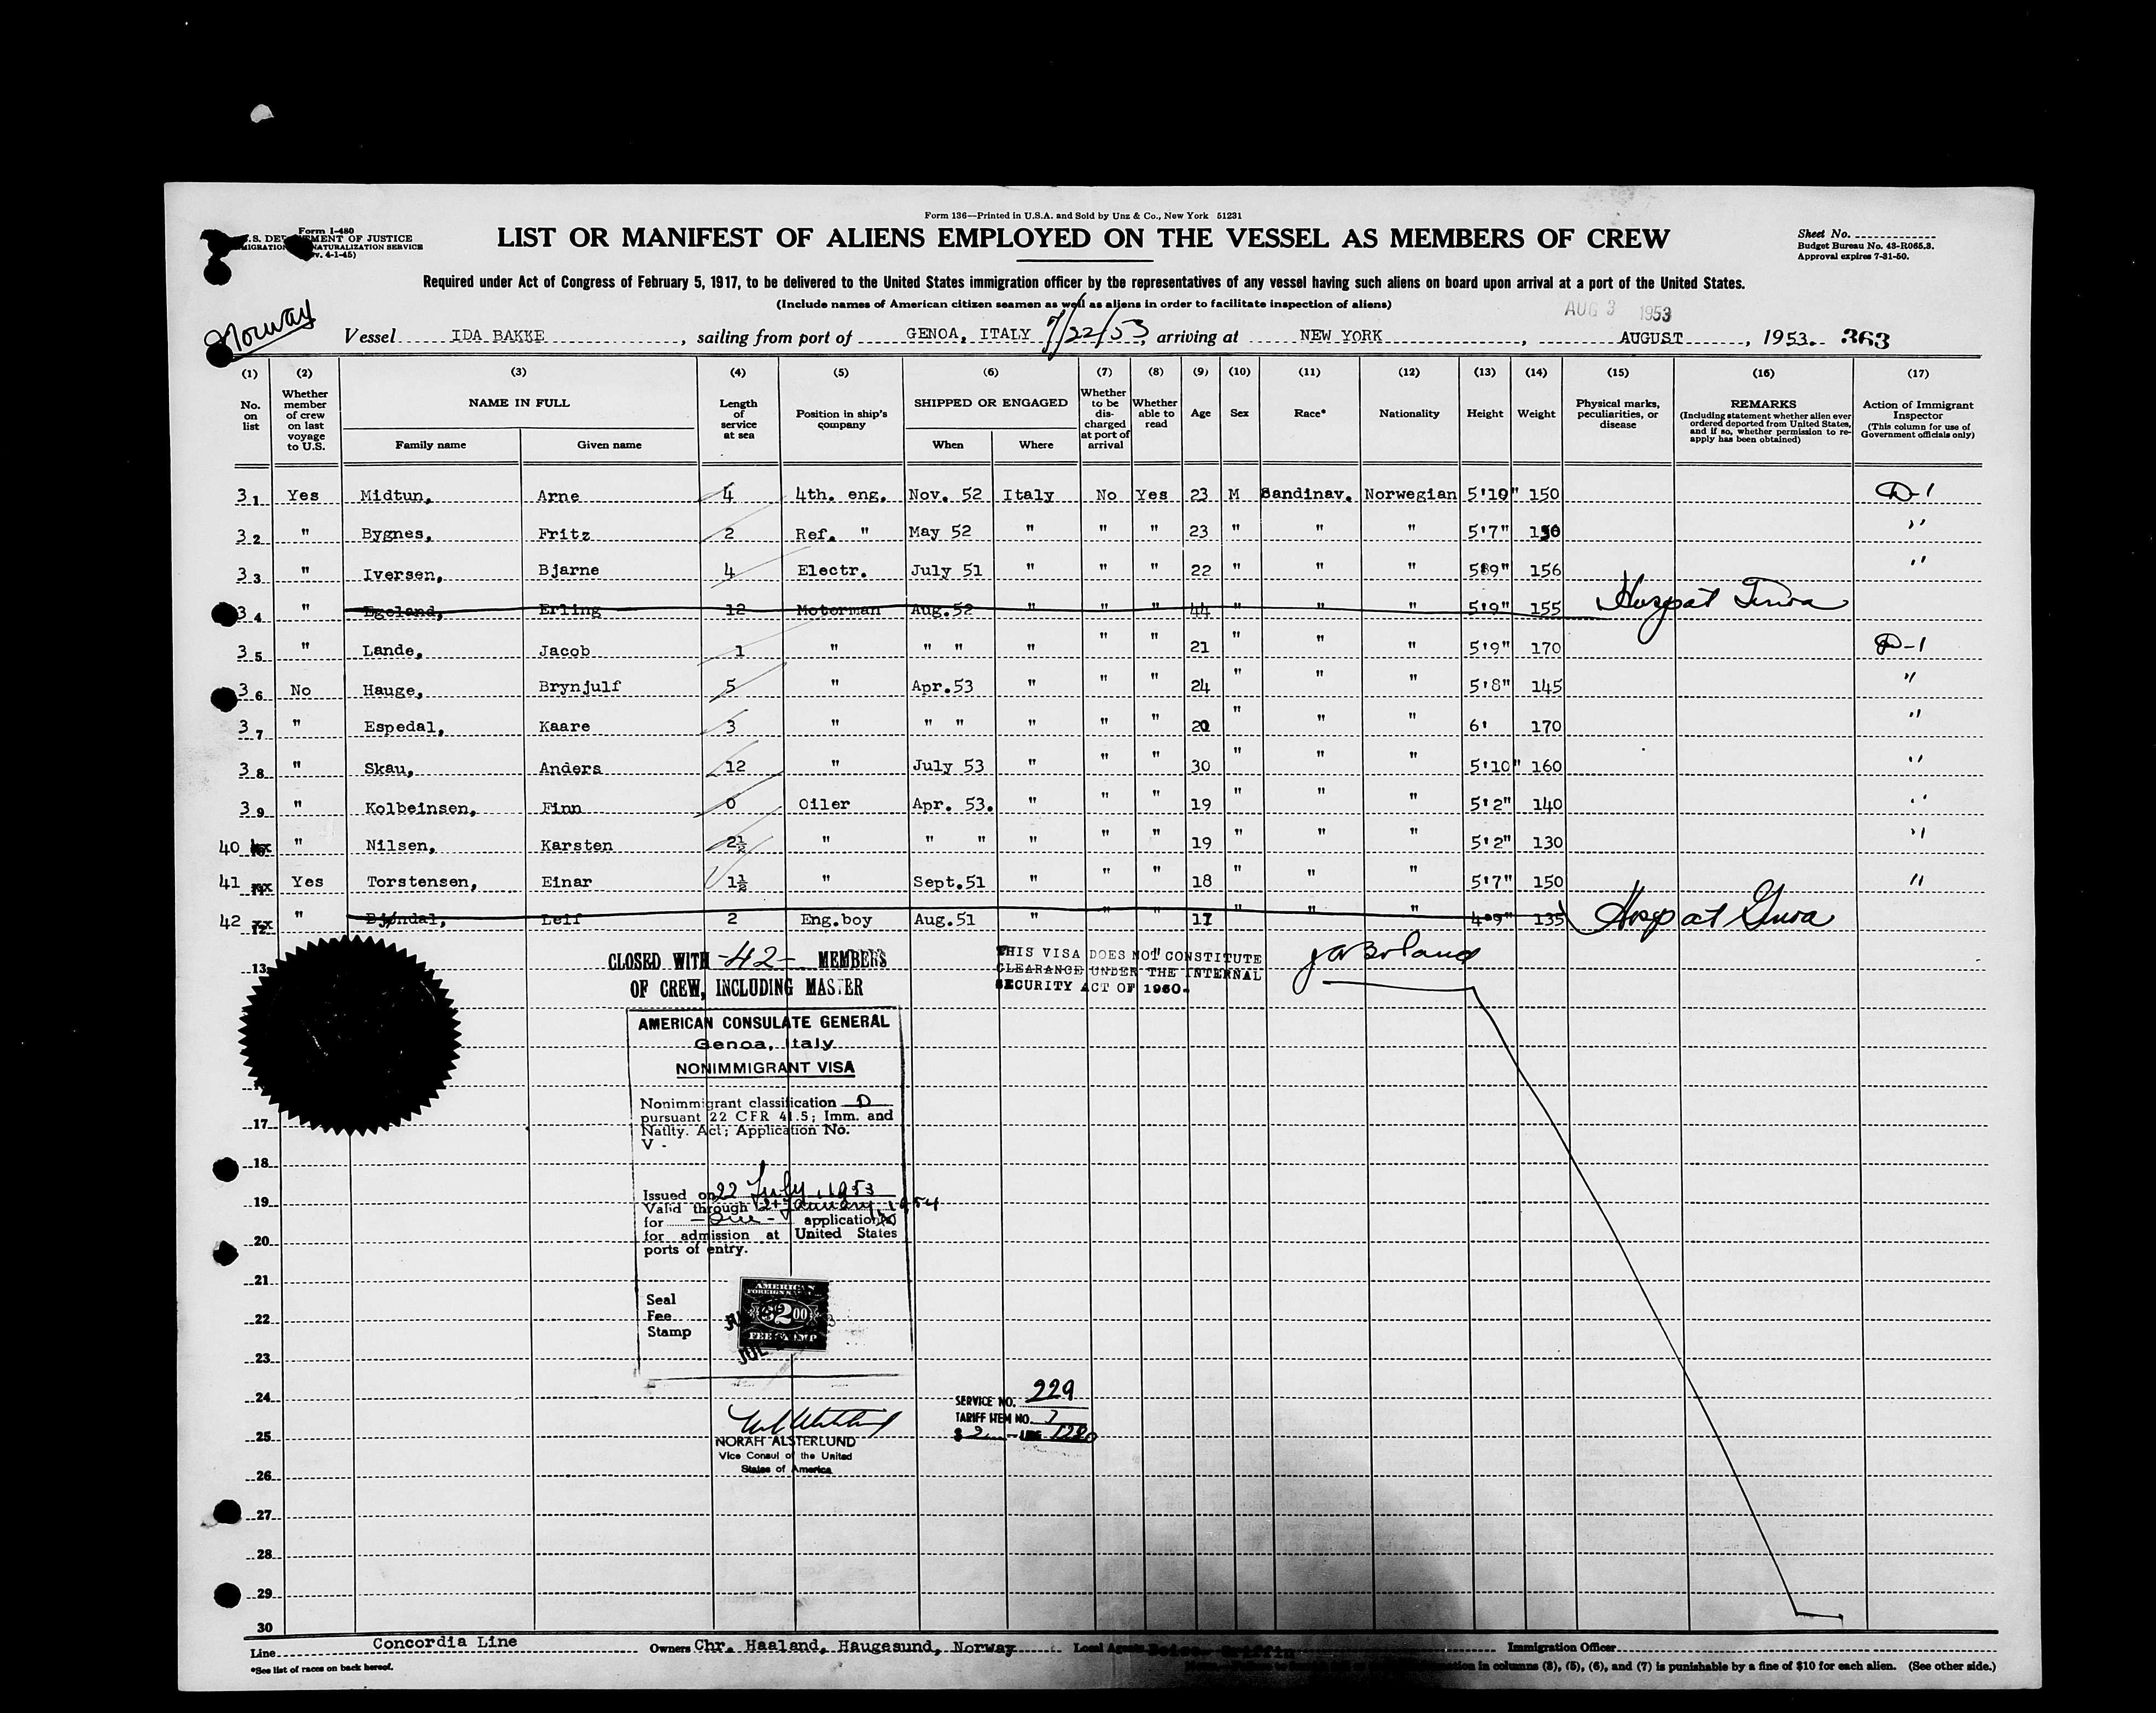 Form 136—Printed in U.S.A. and Sold by Unz & Co., New York 51231
Form I-480
U.S. DEPARTMENT OF JUSTICE
IMMIGRATION NATURALIZATION SERVICE
(Rev. 4-1-45)
LIST OR MANIFEST OF ALIENS EMPLOYED ON THE VESSEL AS MEMBERS OF CREW
Sheet No.
Budget Bureau No. 43-R065.3.
Approval expires 7-31-50.
Required under Act of Congress of February 5, 1917, to be delivered to the United States immigration officer by the representatives of any vessel having such aliens on board upon arrival at a port of the United States.
(Include names of American citizen seamen as well as aliens in order to facilitate inspection of aliens)
AUG 3 1953
Norway
Vessel IDA BAKKE, sailing from port of GENOA, ITALY 7/22/53, arriving at NEW YORK, AUGUST, 1953. 363
(1) (2) (3) (4) (5) (6) (7) (8) (9) (10) (11) (12) (13) (14) (15) (16) (17)
No. on list
Whether member of crew on last voyage to U.S.
NAME IN FULL
Family name Given name
Length of service at sea
Position in ship's company
SHIPPED OR ENGAGED
When Where
Whether to be discharged at port of arrival
Whether able to read
Age Sex Race* Nationality Height Weight
Physical marks, peculiarities, or disease
REMARKS
(Including statement whether alien ever ordered deported from United States, and if so, whether permission to reapply has been obtained)
Action of Immigrant Inspector
(This column for use of Government officials only)
31 Yes Midtun, Arne 4 4th. eng. Nov. 52 Italy No Yes 23 M Sandinav. Norwegian 5'10" 150 D-1
32 " Bygnes, Fritz 2 Ref. " May 52 " " " 23 " " " 5'7" 150 "
33 " Iversen, Bjarne 4 Electr. July 51 " " " 22 " " " 5'9" 156 "
34 " Egeland, Erling 12 Motorman Aug.52 " " " 44 " " " 5'9" 155 Hosp at Genoa
35 " Lande, Jacob 1 " " " " " " 21 " " " 5'9" 170 D-1
36 No Hauge, Brynjulf 5 " Apr.53 " " " 24 " " " 5'8" 145 "
37 " Espedal, Kaare 3 " " " " " " 20 " " " 6' 170 "
38 " Skau, Anders 12 " July 53 " " " 30 " " " 5'10" 160 "
39 " Kolbeinsen, Finn 0 Oiler Apr. 53. " " " 19 " " " 5'2" 140 "
40 " Nilsen, Karsten 2½ " " " " " " 19 " " " 5'2" 130 "
41 Yes Torstensen, Einar 1½ " Sept.51 " " " 18 " " " 5'7" 150 "
42 " Bjøndal, Leif 2 Eng.boy Aug.51 " " " 17 " " " 4'9" 135 Hosp at Genoa
13
CLOSED WITH -42- MEMBERS
OF CREW, INCLUDING MASTER
THIS VISA DOES NOT CONSTITUTE
CLEARANCE UNDER THE INTERNAL
SECURITY ACT OF 1950.
AMERICAN CONSULATE GENERAL
Genoa, Italy
NONIMMIGRANT VISA
Nonimmigrant classification D
pursuant 22 CFR 41.5; Imm. and
Natlty. Act; Application No.
V -
17
18
Issued on 22 July, 1953
Valid through 21 January, 1954
for -One- application(s)
for admission at United States
ports of entry.
19
20
21
22
23
24
25
26
27
28
29
30
Seal
Fee
Stamp
AMERICAN
FOREIGN SERVICE
$2.00
FEE STAMP
JUL
SERVICE NO. 229
TARIFF ITEM NO. 7
$ 2 — LIRE 1280
NORAH ALSTERLUND
Vice Consul of the United
States of America
Line Concordia Line Owners Chr. Haaland, Haugesund, Norway Local Agents Immigration Officer
*See list of races on back hereof.
in columns (3), (5), (6), and (7) is punishable by a fine of $10 for each alien. (See other side.)